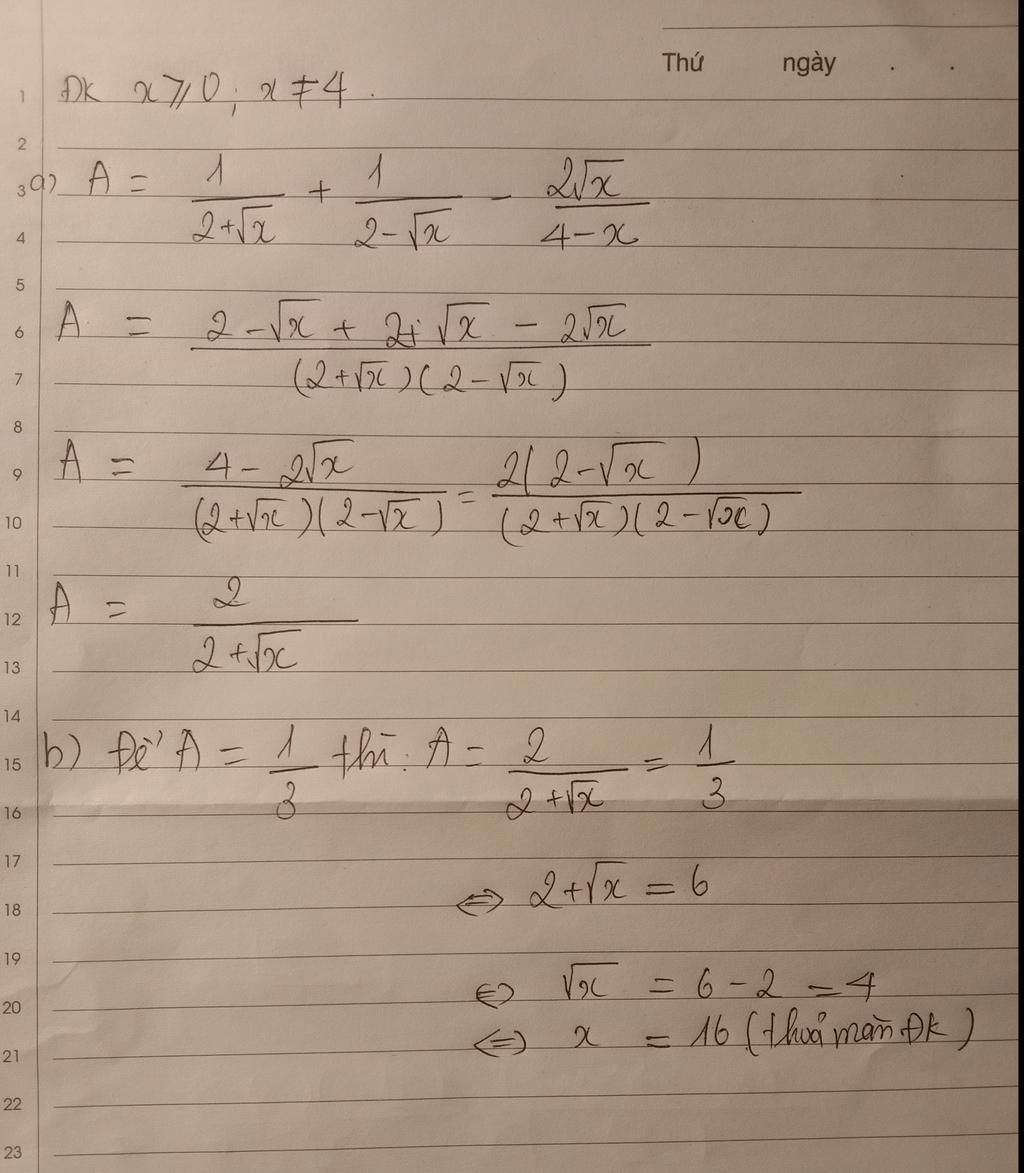 Thứ ngày . .
1 ĐK x ⩾ 0 ; x ≠ 4 .
2
3 a) A = 1/(2+√x) + 1/(2-√x) - 2√x/(4-x)
4
5
6 A = (2 -√x + 2+ √x - 2√x)/((2+√x)(2-√x))
7
8
9 A = (4 - 2√x)/((2+√x)(2-√x)) = 2(2-√x)/((2+√x)(2-√x))
10
11
12 A = 2/(2+√x)
13
14
15 b) Để A = 1/3 thì: A = 2/(2+√x) = 1/3
16
17
18 <=> 2+√x = 6
19
20 <=> √x = 6 - 2 = 4
21 <=> x = 16 (thoả mãn ĐK)
22
23